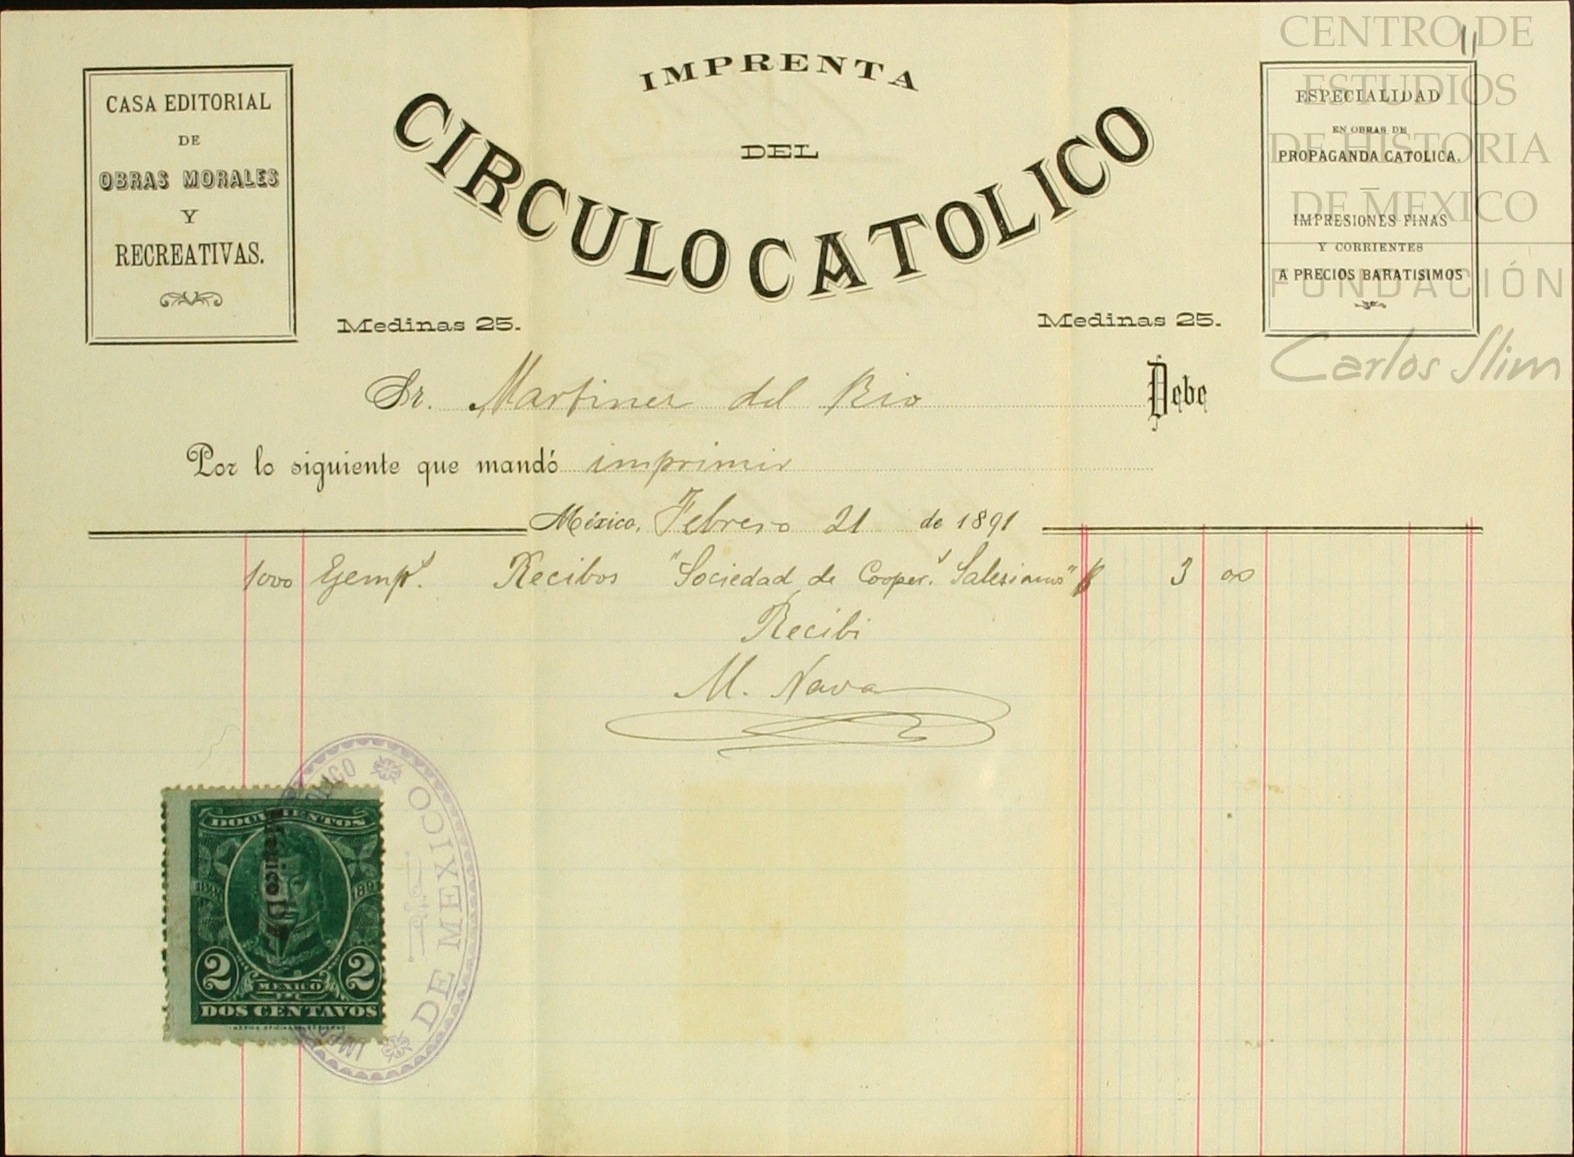 IMPRENTA
DEL
CIRCULO CATOLICO
CASA EDITORIAL
DE
OBRAS MORALES
Y
RECREATIVAS.
ESPECIALIDAD
EN OBRAS DE
PROPAGANDA CATOLICA.
IMPRESIONES FINAS
Y CORRIENTES
A PRECIOS BARATISIMOS
CENTRO DE
ESTUDIOS
DE HISTORIA
DE MEXICO
FUNDACIÓN
Carlos Slim
11
Medinas 25. Medinas 25.
Sr. Martinez del Rio Debe
Por lo siguiente que mandó imprimir
México, Febrero 21 de 1891
1000 Ejemps. Recibos "Sociedad de Coopers. Salesianos" $ 3 00
Recibi
M. Nava
DOCUMENTOS
México D.F.
189
2 MEXICO 2
DOS CENTAVOS
DE MEXICO